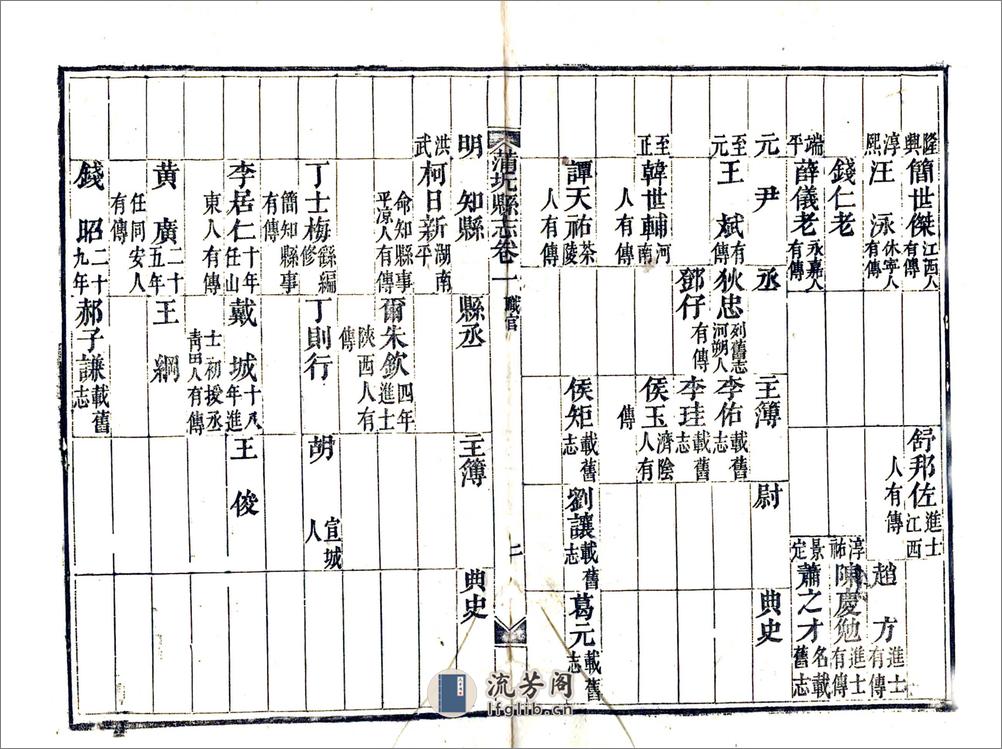 隆興 簡世傑 江西人有傳 舒邦佐 進士江西人有傳
淳熙 汪泳 休寧人有傳 趙方 進士有傳
錢仁老 淳祐 陳慶勉 進士有傳
端平 薛儀老 永嘉人有傳 景定 蕭之才 名載舊志
元 尹 丞 主簿 尉 典史
至元 王斌 有傳 狄忠 列舊志河朔人 李佑 載舊志
鄧仔 有傳 李珪 載舊志
至正 韓世輔 河南人有傳 侯玉 濟陰人有傳
譚天祐 茶陵人有傳 侯矩 載舊志 劉讓 載舊志 葛元 載舊志
蒲圻縣志卷一 職官 二
明 知縣 縣丞 主簿 典史
洪武 柯日新 湖南平
命知縣事平凉人有傳 爾朱欽 四年進士陝西人有傳
丁士梅 編修簡知縣事有傳 丁則行 胡 宣城人
李居仁 十年任山東人有傳 戴城 十八年進士初授丞青田人有傳 王俊
黄廣 二十五年任同安人有傳 王綱
錢昭 二十九年 郝子謙 載舊志
流芳阁
lfglib.cn